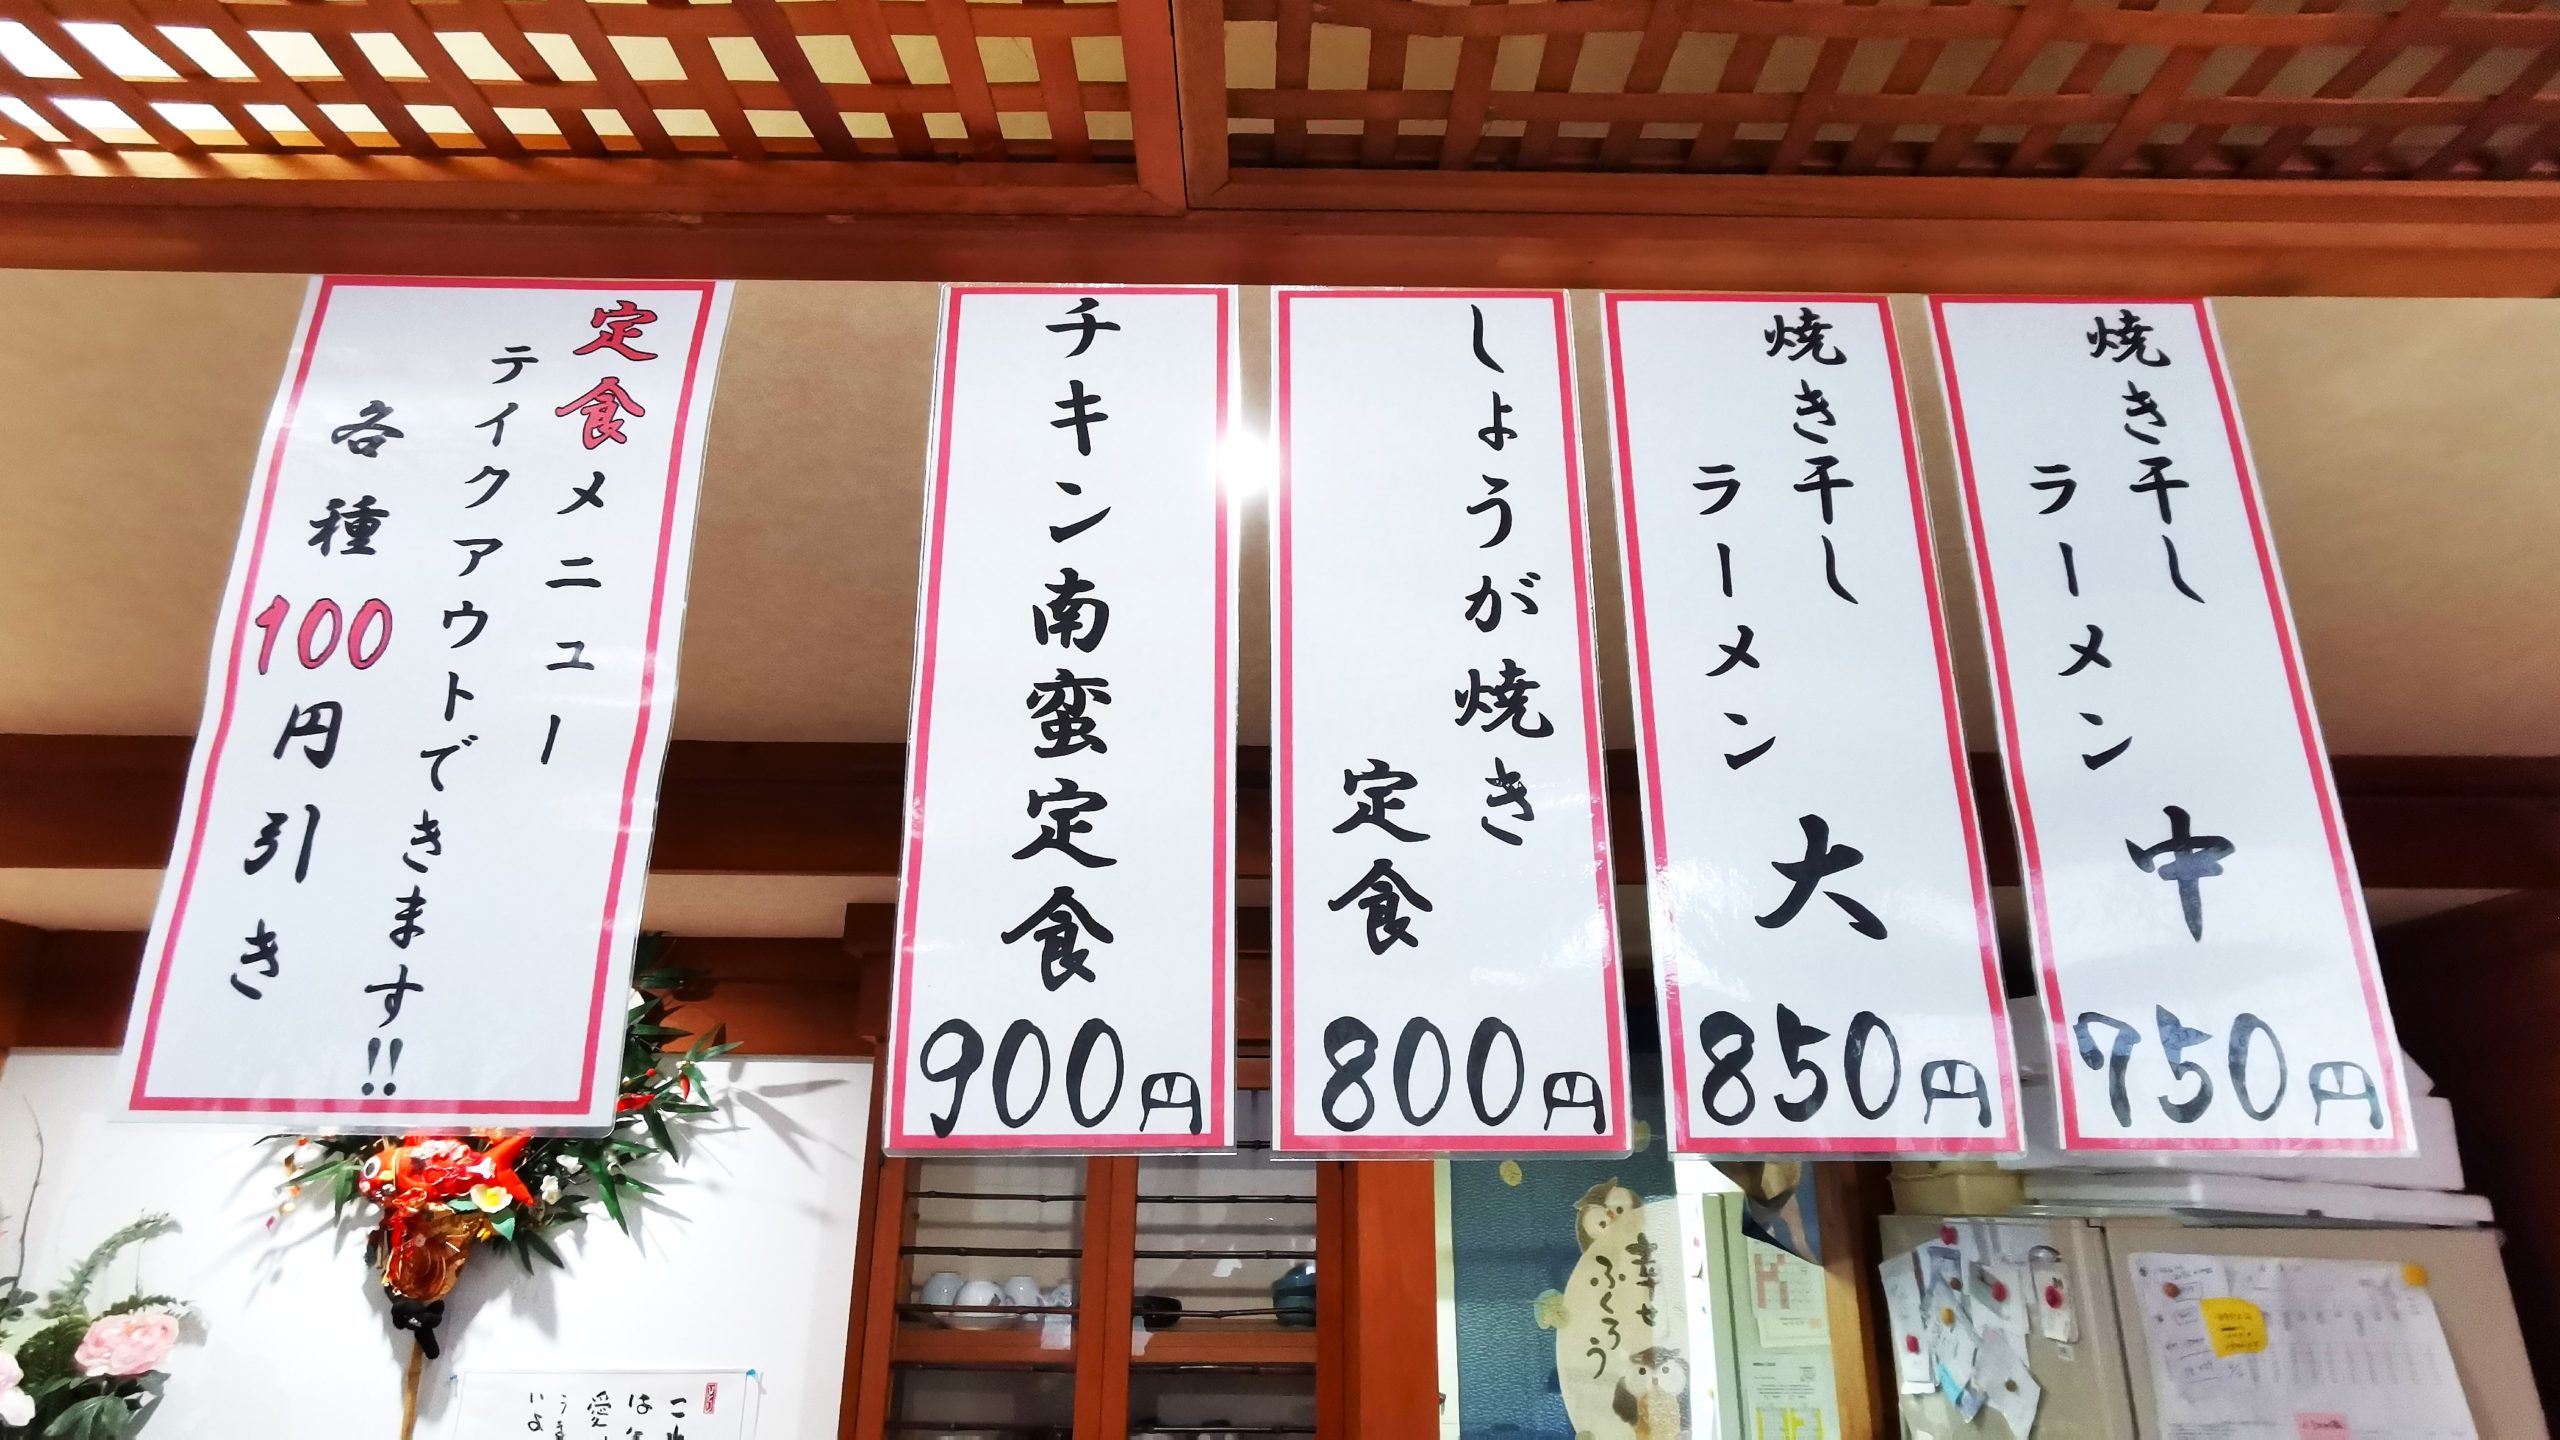 焼き干し
ラーメン 中
750円
焼き干し
ラーメン 大
850円
しょうが焼き
定食
800円
チキン南蛮定食
900円
定食メニュー
テイクアウトできます!!
各種100円引き
幸せ
ふくろう